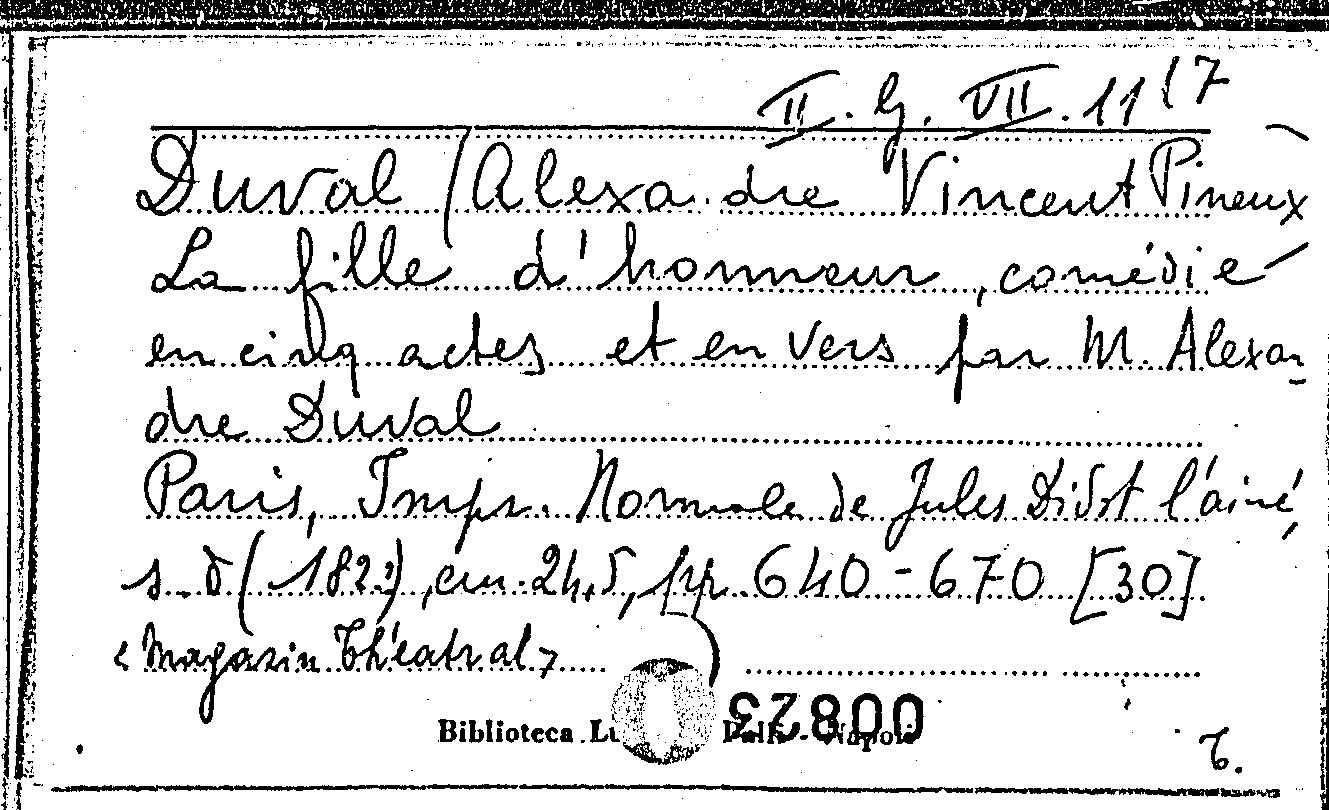 II. G. VII. 11 (7
Duval (Alexandre Vincent Pineux)
La fille d'honneur, comédie
en cinq actes et en vers par M. Alexan-
dre Duval
Paris, Impr. Normale de Jules Didot l'ainé,
s. d (182?), cm. 24,5, pp. 640-670 [30]
<Magazin Théatral>
00823
Biblioteca Napoli
T.